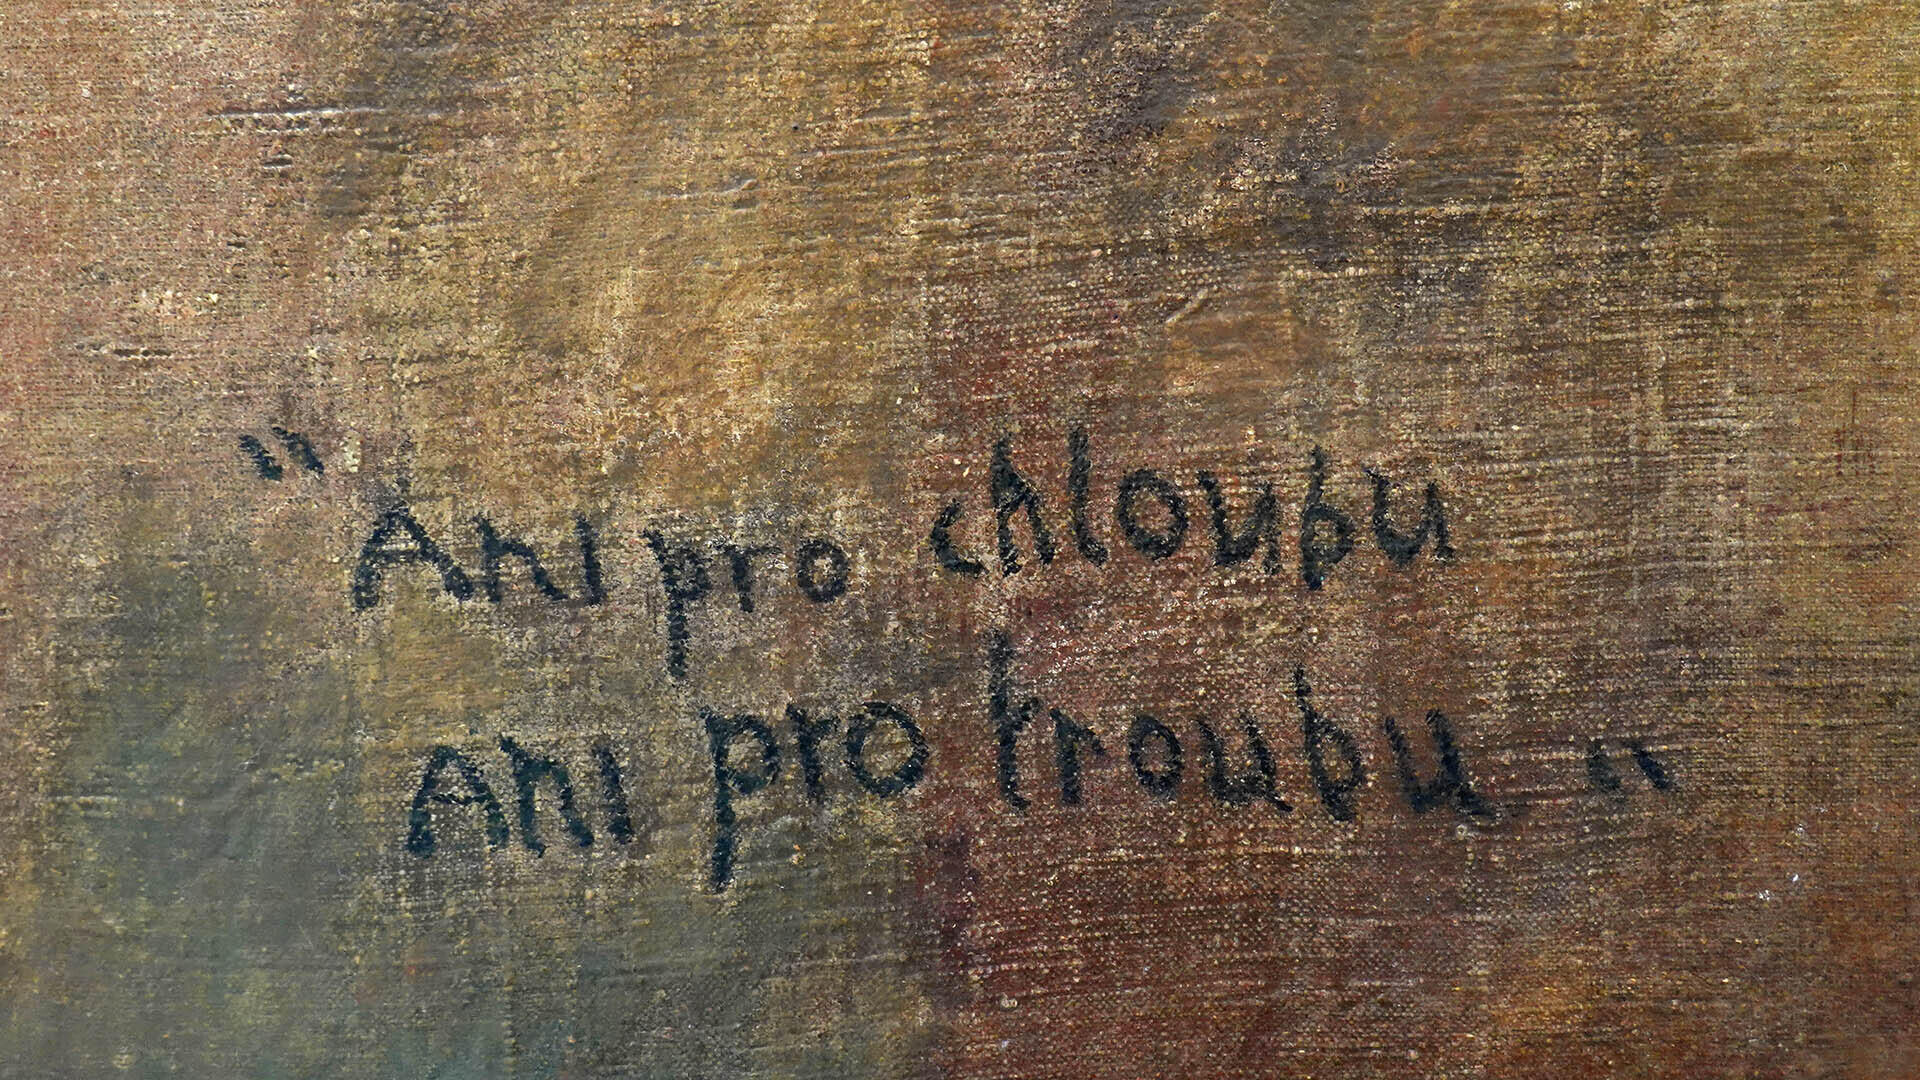 "Ani pro chloupu
Ani pro troubu"